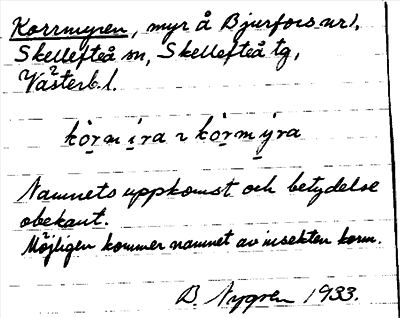 Korrmyren, myr å Bjurfors ur),
Skellefteå sn, Skellefteå tg,
Västerb. l.
kòrmíra ~ kòrmýra
Namnets uppkomst och betydelse
obekant.
Möjligen kommer namnet av insekten korm.
B. Nygren 1933.